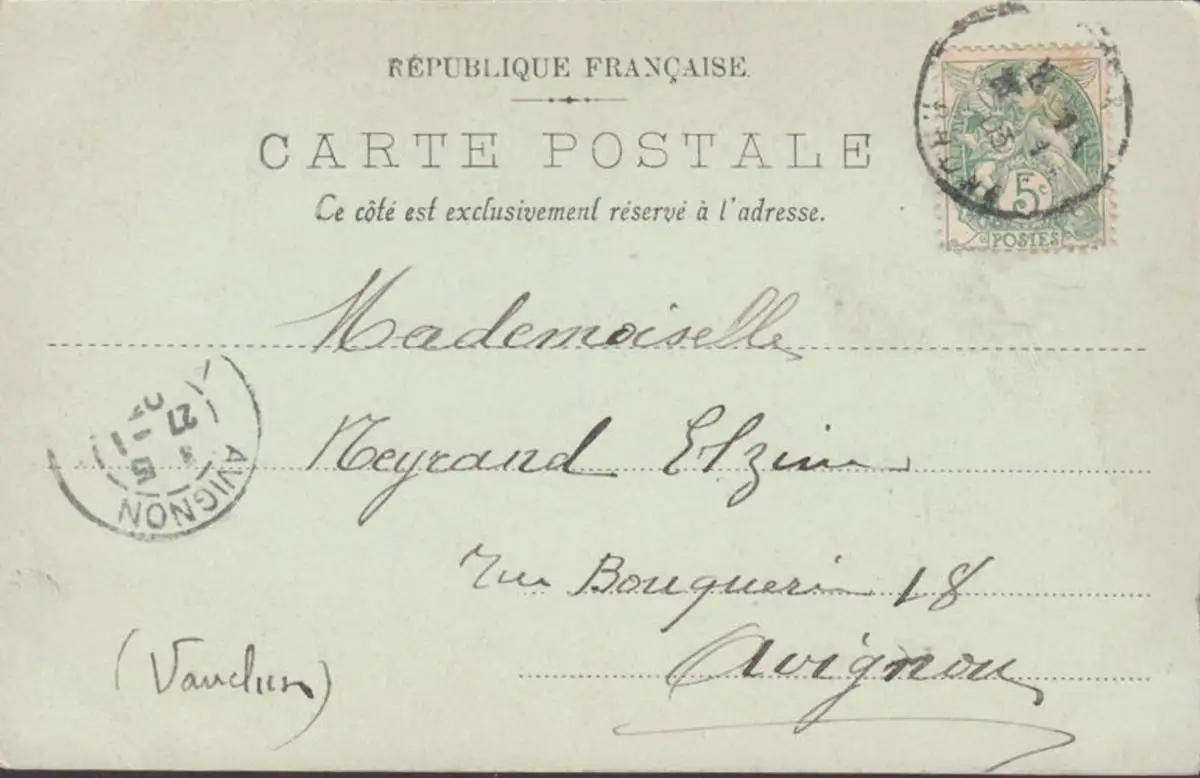 RÉPUBLIQUE FRANÇAISE
CARTE POSTALE
Ce côté est exclusivement réservé à l'adresse.
5c
POSTES
Mademoiselle
Meyrand Elzine
rue Bouquerie 18
Avignon
(Vaucluse)
AVIGNON
27